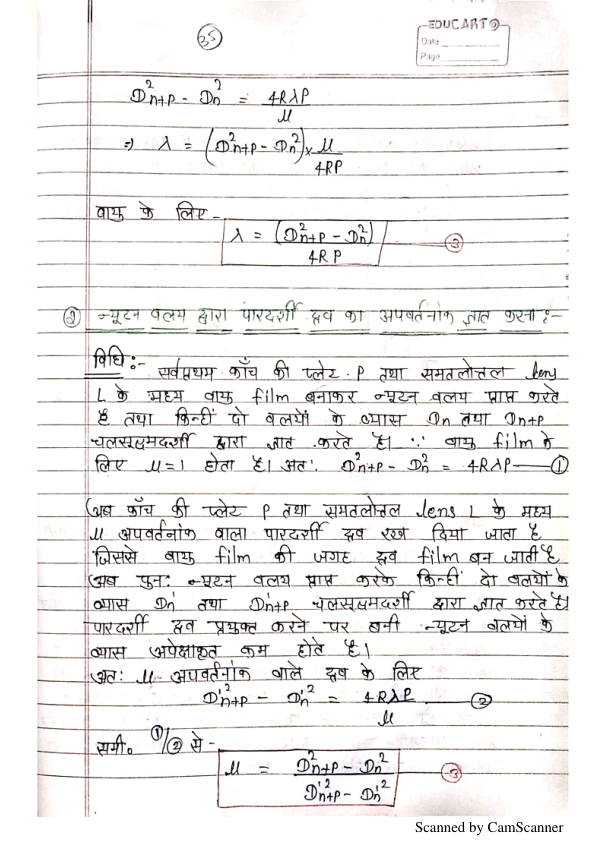 35
EDUCART
Date
Page
D²n+p - Dn² = 4RλP/μ
⇒ λ = (D²n+p - Dn²) × μ/4RP
वायु के लिए -
λ = (D²n+p - Dn²)/4RP — ③
② न्यूटन वलय द्वारा पारदर्शी द्रव का अपवर्तनांक ज्ञात करना :-
विधि :- सर्वप्रथम काँच की प्लेट P तथा समतलोत्तल lens
L के मध्य वायु film बनाकर न्यूटन वलय प्राप्त करते
है तथा किन्हीं दो वलयों के व्यास Dn तथा Dn+p
चलसूक्ष्मदर्शी द्वारा ज्ञात करते है। ∵ वायु film के
लिए μ=1 होता है। अतः D²n+p - Dn² = 4RλP — ①
अब काँच की प्लेट P तथा समतलोत्तल lens L के मध्य
μ अपवर्तनांक वाला पारदर्शी द्रव रख दिया जाता है
जिससे वायु film की जगह द्रव film बन जाती है
अब पुनः न्यूटन वलय प्राप्त करके किन्हीं दो वलयों के
व्यास D'n तथा D'n+p चलसूक्ष्मदर्शी द्वारा ज्ञात करते है।
पारदर्शी द्रव प्रयुक्त करने पर बनी न्यूटन वलयों के
व्यास अपेक्षाकृत कम होते है।
अतः μ - अपवर्तनांक वाले द्रव के लिए
D'²n+p - D'n² = 4RλP/μ — ②
समी० ①/② से -
μ = (D²n+p - Dn²)/(D'²n+p - D'n²) — ③
Scanned by CamScanner